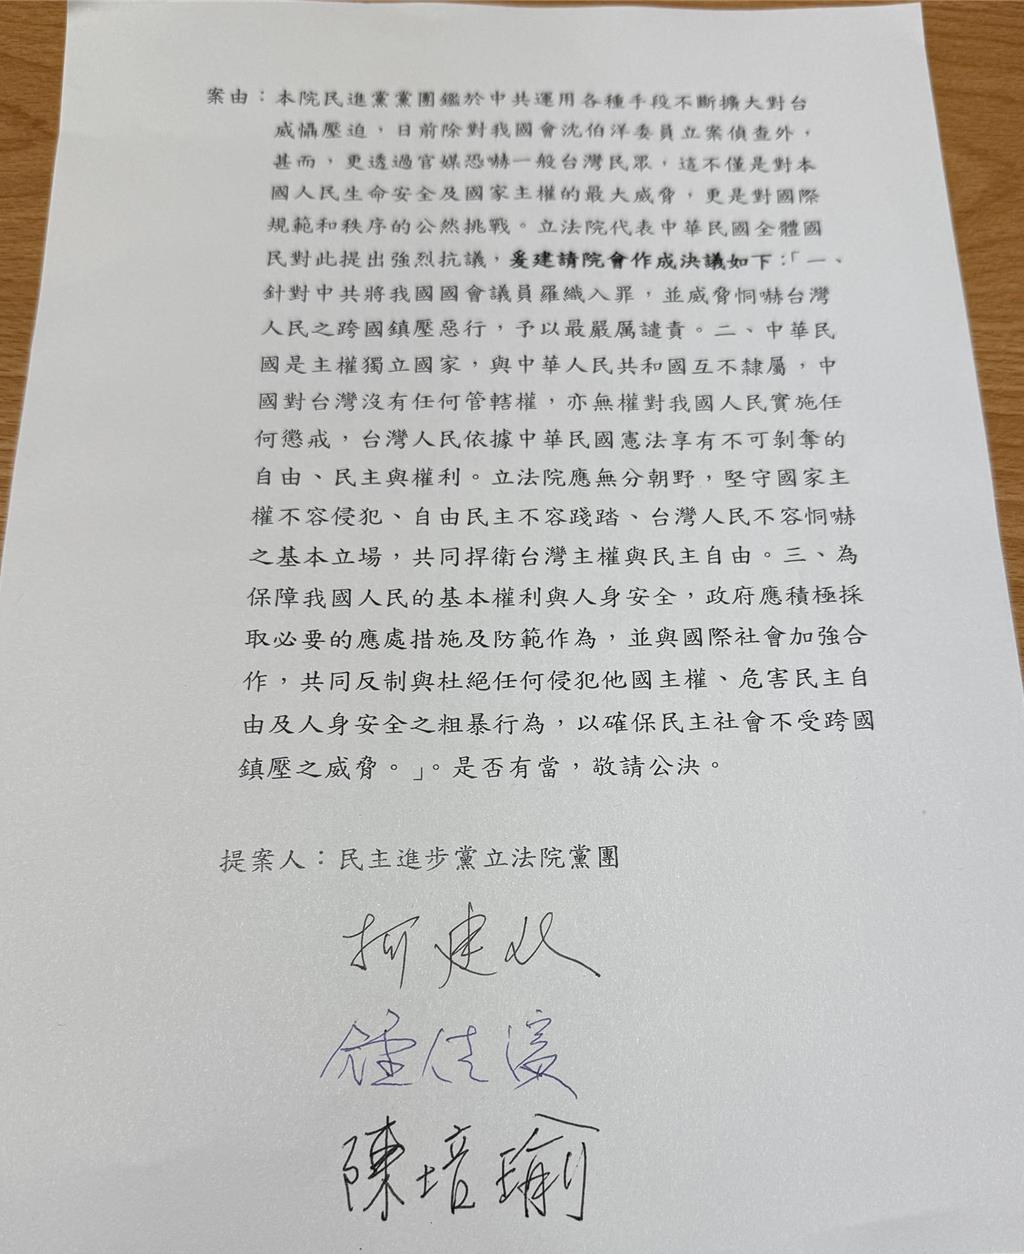 案由：本院民進黨黨團鑑於中共運用各種手段不斷擴大對台
威懾壓迫，日前除對我國會沈伯洋委員立案偵查外，
甚而，更透過官媒恐嚇一般台灣民眾，這不僅是對本
國人民生命安全及國家主權的最大威脅，更是對國際
規範和秩序的公然挑戰。立法院代表中華民國全體國
民對此提出強烈抗議，爰建請院會作成決議如下：「一、
針對中共將我國國會議員羅織入罪，並威脅恫嚇台灣
人民之跨國鎮壓惡行，予以最嚴厲譴責。二、中華民
國是主權獨立國家，與中華人民共和國互不隸屬，中
國對台灣沒有任何管轄權，亦無權對我國人民實施任
何懲戒，台灣人民依據中華民國憲法享有不可剝奪的
自由、民主與權利。立法院應無分朝野，堅守國家主
權不容侵犯、自由民主不容踐踏、台灣人民不容恫嚇
之基本立場，共同捍衛台灣主權與民主自由。三、為
保障我國人民的基本權利與人身安全，政府應積極採
取必要的應處措施及防範作為，並與國際社會加強合
作，共同反制與杜絕任何侵犯他國主權、危害民主自
由及人身安全之粗暴行為，以確保民主社會不受跨國
鎮壓之威脅。」。是否有當，敬請公決。
提案人：民主進步黨立法院黨團
柯建銘
鍾佳濱
陳培瑜